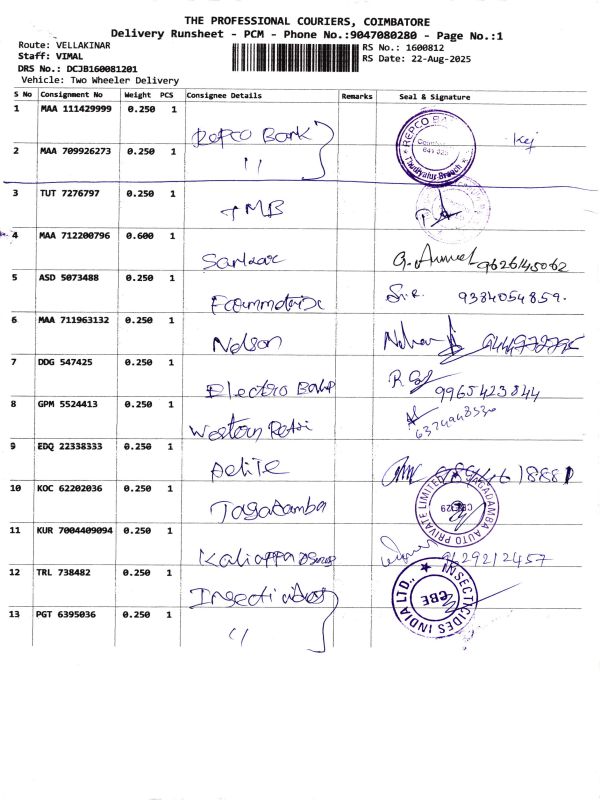 THE PROFESSIONAL COURIERS, COIMBATORE
Delivery Runsheet - PCM - Phone No.:9047080280 - Page No.:1
Route: VELLAKINAR
RS No.: 1600812
Staff: VIMAL
RS Date: 22-Aug-2025
DRS No.: DCJB160081201
Vehicle: Two Wheeler Delivery
S No Consignment No Weight PCS Consignee Details Remarks Seal & Signature
1 MAA 111429999 0.250 1 Repco Bank
2 MAA 709926273 0.250 1 "
3 TUT 7276797 0.250 1 TMB
4 MAA 712200796 0.600 1 Sankar 9626145062
5 ASD 5073488 0.250 1 9384054859.
6 MAA 711963132 0.250 1 Nelson
7 DDG 547425 0.250 1 Electro 9965423844
8 GPM 5524413 0.250 1 Western
9 EDQ 22338333 0.250 1
10 KOC 62202036 0.250 1 Jagadamba
JAGADAMBA AUTO PRIVATE LIMITED
11 KUR 7004409094 0.250 1 9629212457
12 TRL 738482 0.250 1
INSECTICIDES INDIA LTD.,
CBE
13 PGT 6395036 0.250 1 "